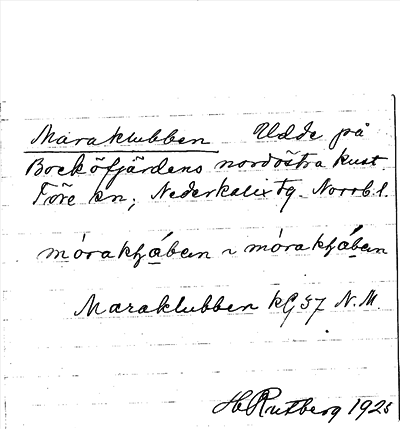 Maraklubben Udde på
Bocköfjärdens nordöstra kust.
Töre sn, Nederkalix tg. Norrb. l.
Maraklubben kG 57 N.M.
H Rutberg 1925